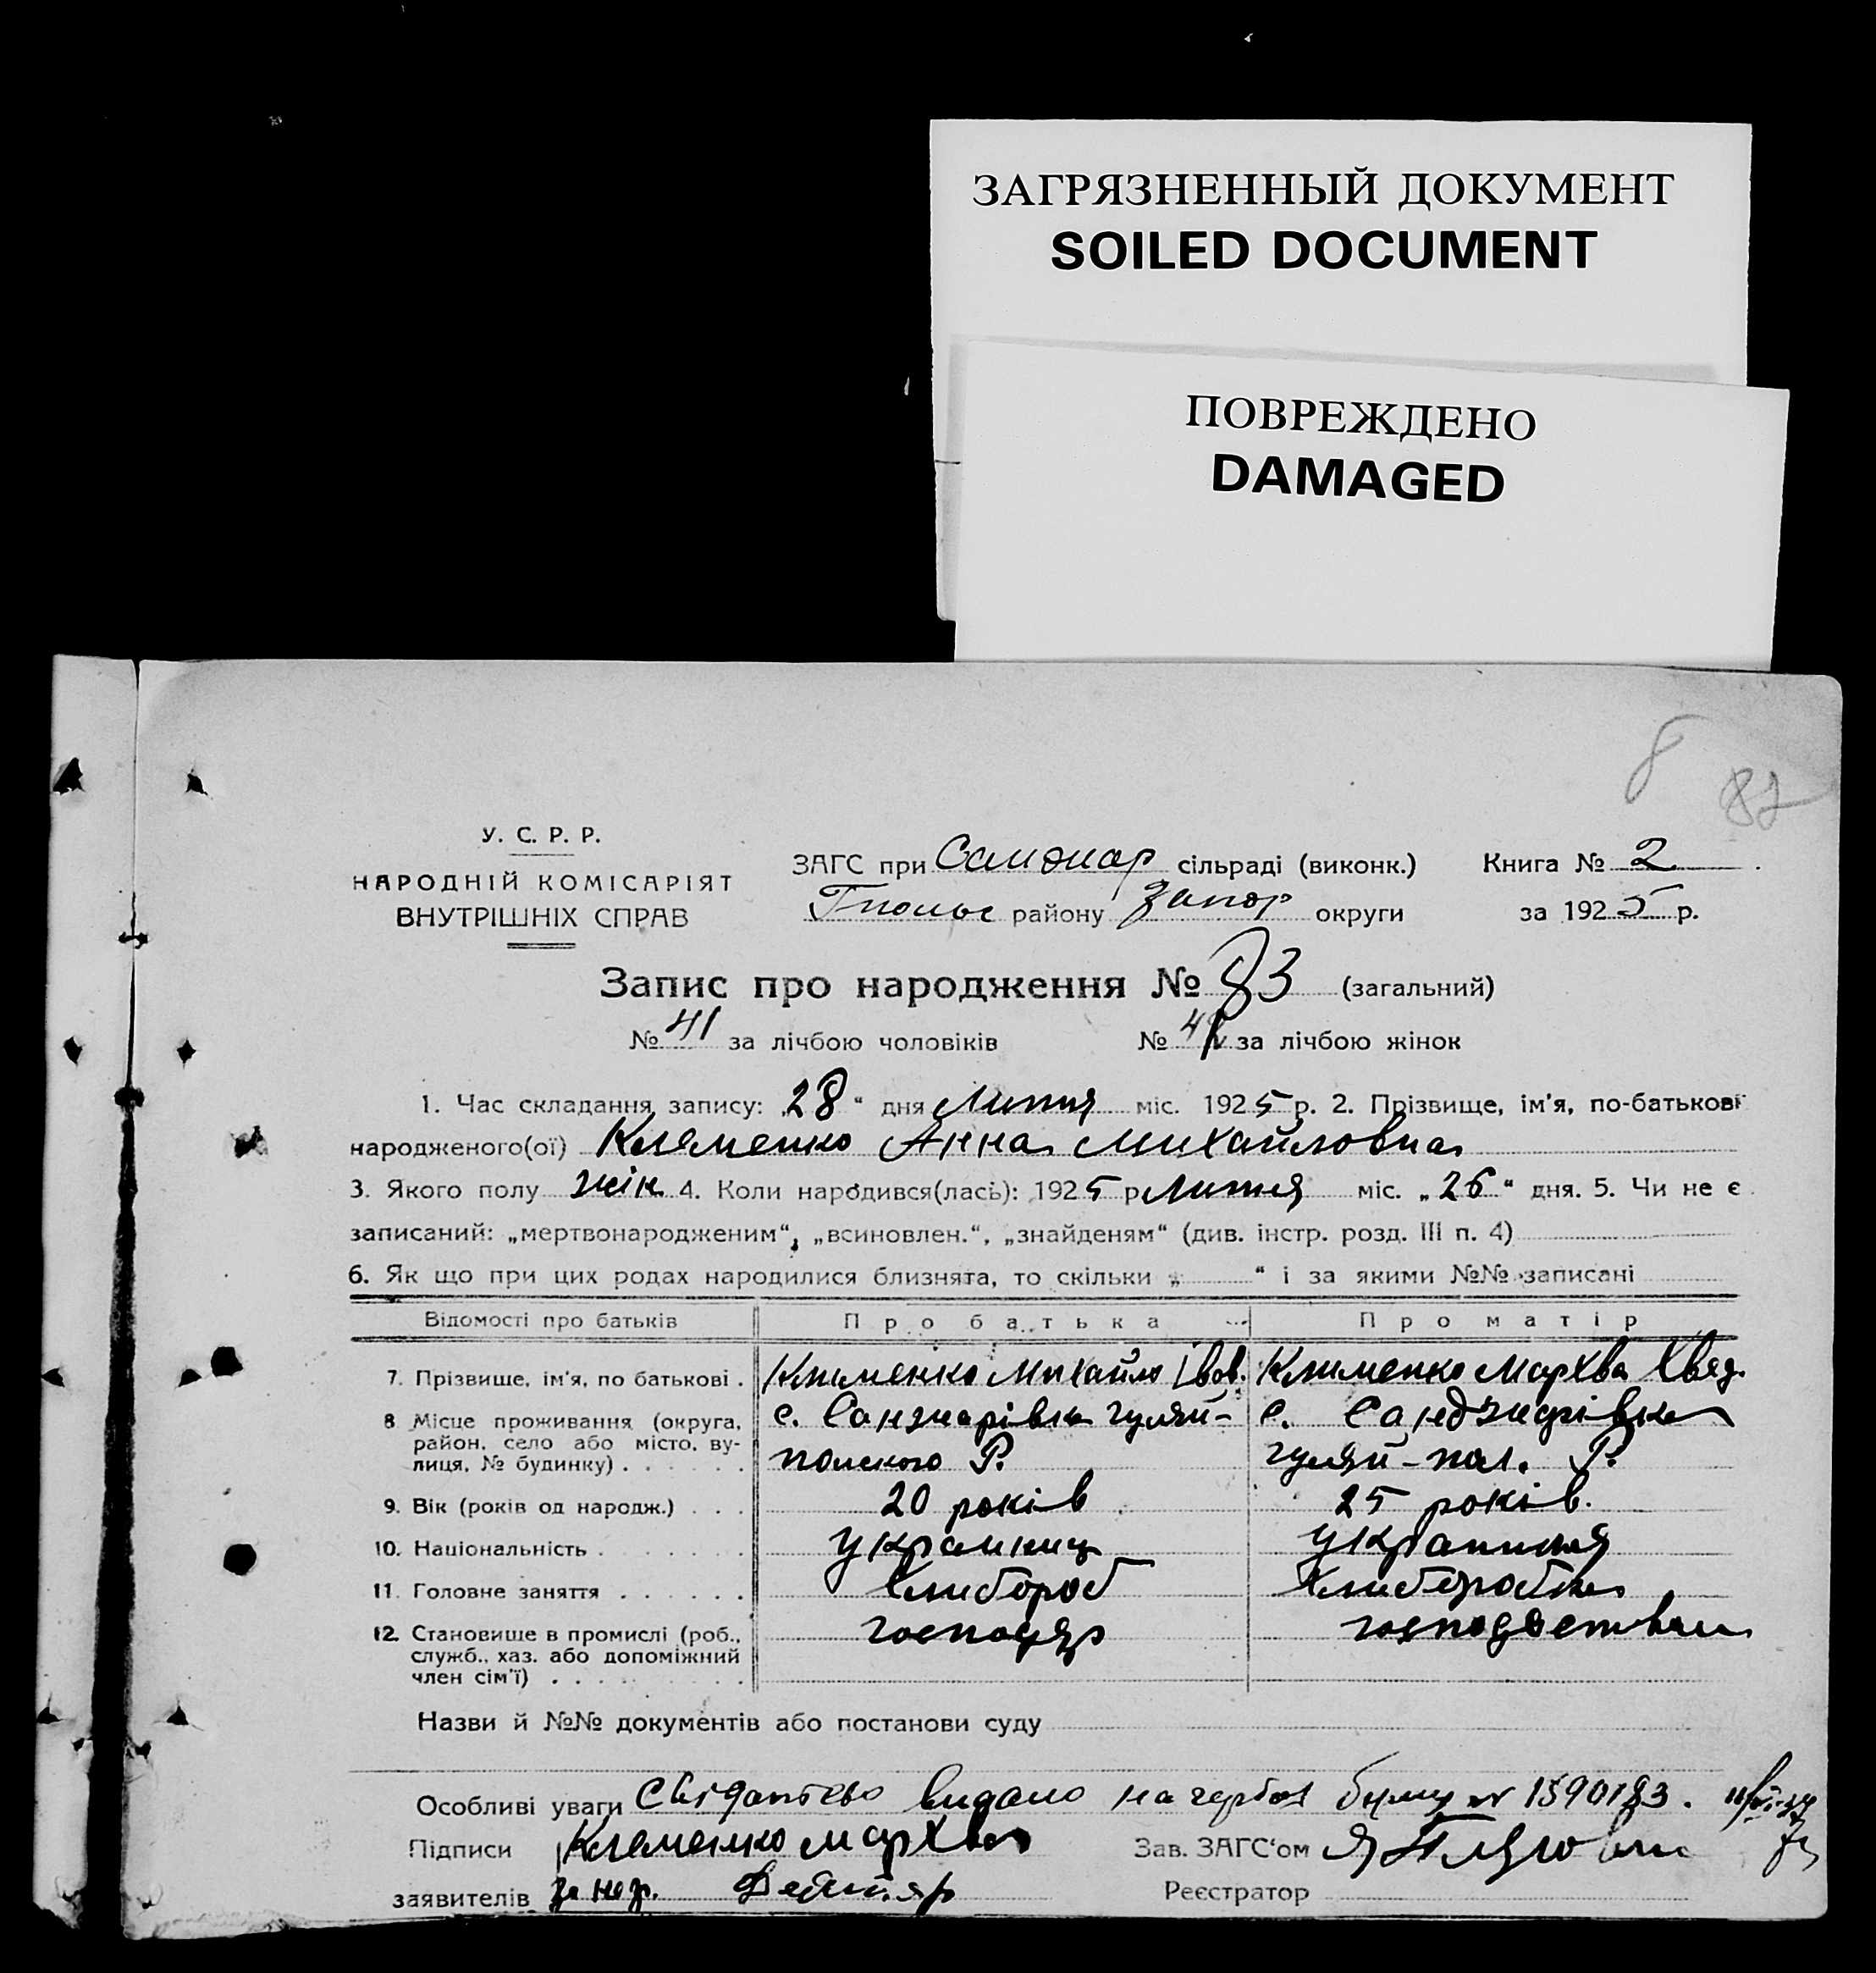 ЗАГРЯЗНЕННЫЙ ДОКУМЕНТ
SOILED DOCUMENT
ПОВРЕЖДЕНО
DAMAGED
8
87
У. С. Р. Р.
НАРОДНІЙ КОМІСАРІЯТ
ВНУТРІШНІХ СПРАВ
ЗАГС при Санжар сільраді (виконк.) Книга № 2
району Запор округи за 1925 р.
Запис про народження № 83 (загальний)
№ 41 за лічбою чоловіків № за лічбою жінок
1. Час складання запису: „28“ дня Липня міс. 1925 р. 2. Прізвище, ім'я, по-батькові
народженого(ої) Клеменко Анна Михайловна
3. Якого полу жін. 4. Коли народився(лась): 1925 р Липня міс. „26“ дня. 5. Чи не є
записаний: „мертвонародженим“, „всиновлен.“, „знайденям“ (див. інстр. розд. III п. 4)
6. Як що при цих родах народилися близнята, то скільки „ “ і за якими №№ записані
Відомості про батьків Про батька Про матір
7. Прізвище, ім'я, по батькові . Клименко Михайло Івов. Клименко Мархва Хвед.
8 Місце проживання (округа, с. Санжарівка гуляй- с. Санджарівка
район, село або місто, ву- польського Р. гуляй-пол. Р.
лиця, № будинку) . . . . . .
9. Вік (років од народж.) . . . 20 років 25 років.
10. Національність . . . . . . . украинец украинка
11. Головне заняття . . . . . . Хлибороб Хлиборобка
12. Становище в промислі (роб., господар
служб., хаз. або допоміжний
член сім'ї) . . . . . . . . .
Назви й №№ документів або постанови суду
Особливі уваги Свідоцтво видано на гербов бумагу № 1590183.
Підписи Клеменко Мархва Зав. ЗАГС'ом
заявителів за негр. Реєстратор